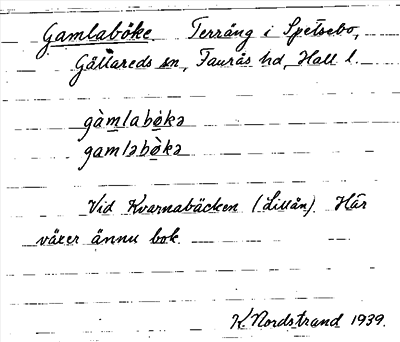 Gamlaböke. Terräng i Spetsebo,
Gällareds sn, Faurås hd, Hall l.
gàmlabø̀kə
gamləbø̀kə
Vid Kvarnabäcken (Lillån). Här
växer ännu bok.
K. Nordstrand 1939.